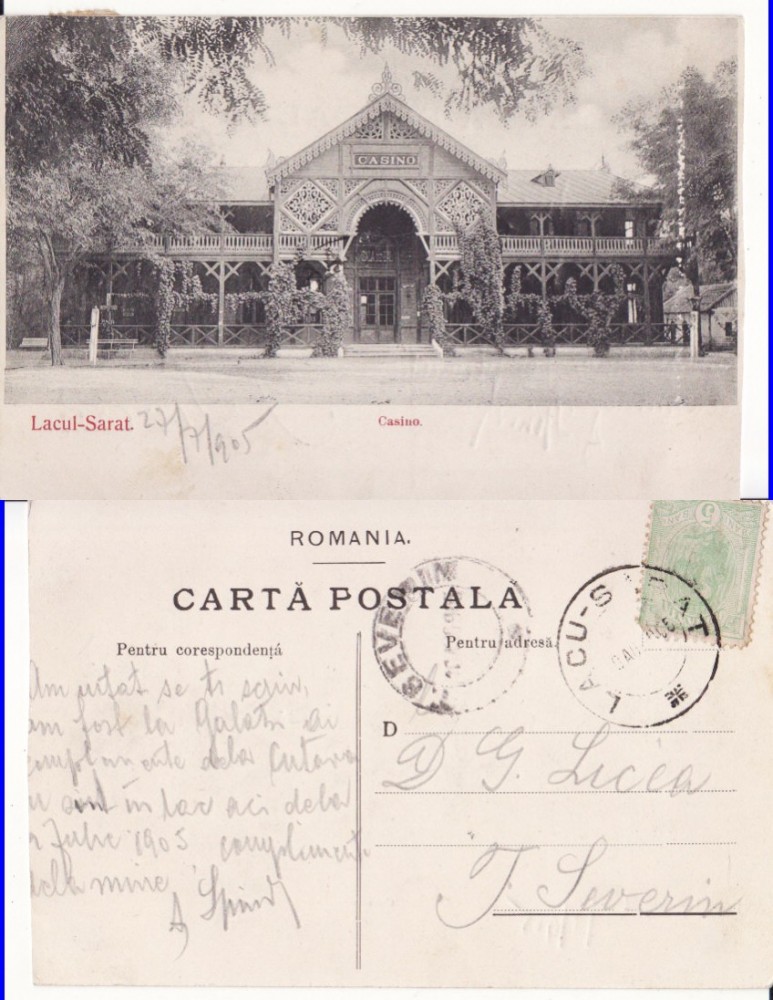 CASINO
Lacul-Sarat. 27/7/905
Casino.
ROMANIA.
CARTĂ POSTALA
Pentru corespondență
Pentru adresă
T. SEVERIN
LACU-SARAT
5
Am uitat se ti scriu,
am fost la Galatri ai
complimente dela
sint in lac aci dela
Julie 1905 complimente
dela mine
D
D G. Licea
T. Severin